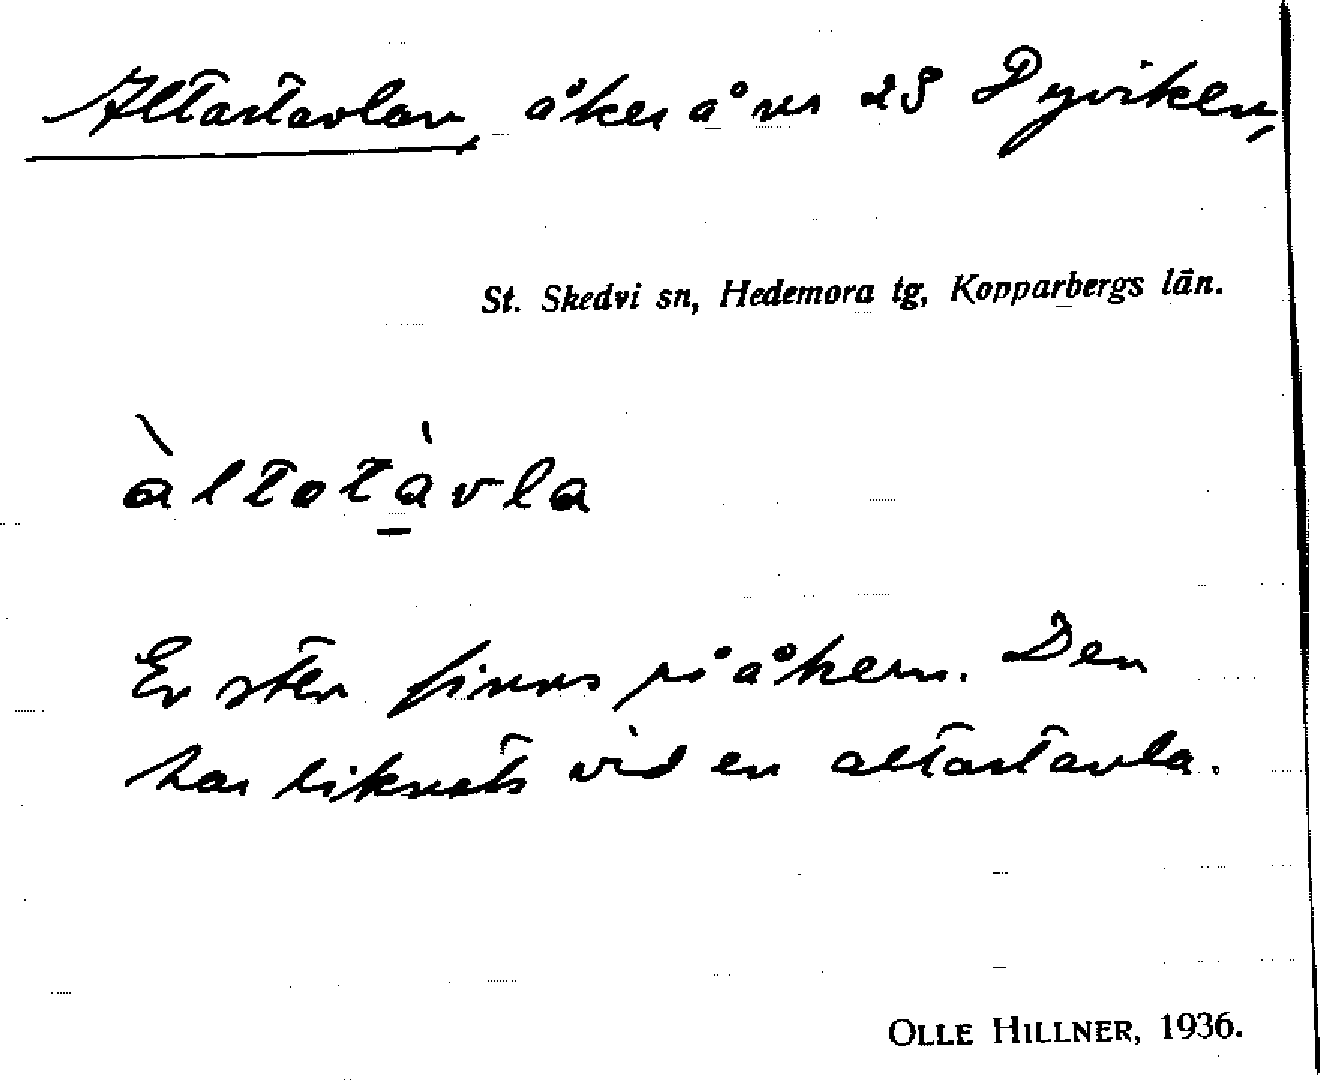 Altartavlan, åker å nr 28 Pyviken,
St. Skedvi sn, Hedemora tg, Kopparbergs län.
àltotàvla
En sten finns på åkern. Den
har liknats vid en altartavla.
OLLE HILLNER, 1936.